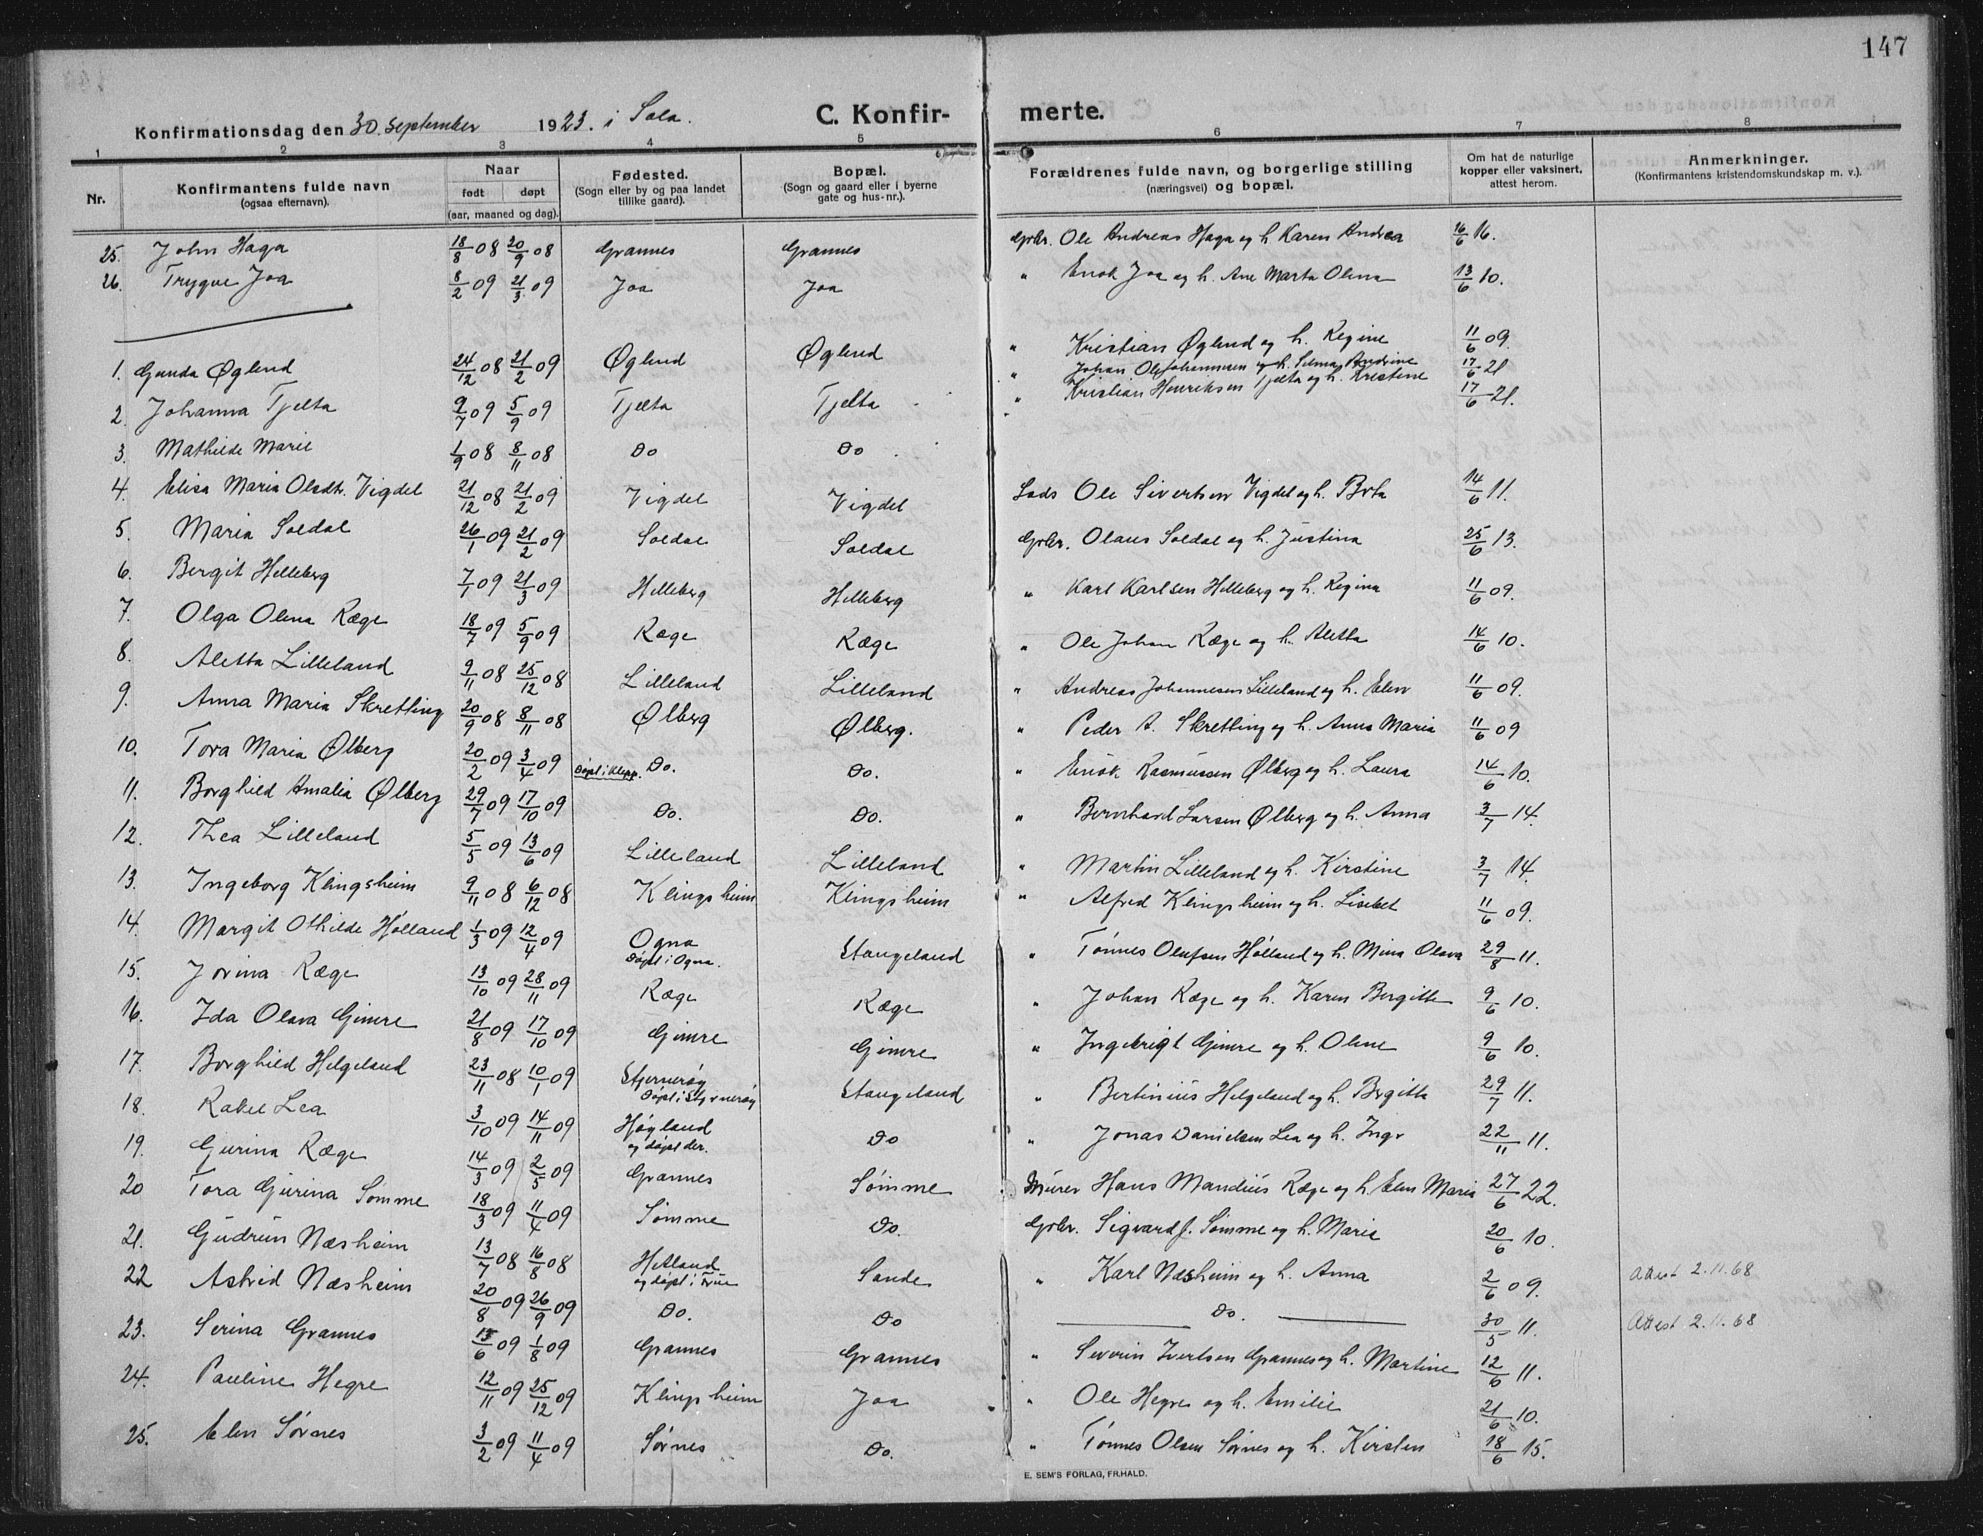 147
Konfirmationsdag den 30. september 1923. i Sola.
C. Konfirmerte.
1 2 3 4 5 6 7 8
Nr.
Konfirmantens fulde navn
(ogsaa efternavn).
Naar
født døpt
(aar, maaned og dag).
Fødested.
(Sogn eller by og paa landet
tillike gaard).
Bopæl.
(Sogn og gaard eller i byerne
gate og hus-nr.).
Forældrenes fulde navn, og borgerlige stilling
(næringsvei) og bopæl.
Om hat de naturlige
kopper eller vaksinert,
attest herom.
Anmerkninger.
(Konfirmantens kristendomskundskap m. v.).
25. John Haga 18/8 08 20/9 08 Grannes Grannes Gbr. Ole Andreas Haga og h. Karen Andrea 16/6 16.
26. Trygve Joa 8/2 09 21/3 09 Joa Joa " Enok Joa og h. Ane Marta Olena 13/6 10.
1. Gunda Øglend 24/12 08 21/2 09 Øglend Øglend " Kristian Øglend og h. Regine 11/6 09.
" Johan Ole Johannesen og h. Selma Andrine 17/6 21
2. Johanna Tjelta 9/7 09 5/9 09 Tjelta Tjelta " Kristian Henriksen Tjelta og h. Kristine 17/6 21.
3. Mathilde Marie 1/9 08 8/11 08 Do Do
4. Elisa Maria Olsdtr. Vigdel 21/12 08 21/2 09 Vigdel Vigdel Ole Sivertsen Vigdel og h. Berta 14/6 11.
5. Maria Soldal 26/1 09 21/2 09 Soldal Soldal Gbr. Olaus Soldal og h. Justina 25/6 13.
6. Bergit Helleberg 7/1 09 21/3 09 Helleberg Helleberg " Karl Karlsen Helleberg og h. Regina 11/6 09.
7. Olga Olena Ræge 18/7 09 5/9 09 Ræge Ræge " Ole Johan Ræge og h. Aletta 14/6 10.
8. Aletta Lilleland 9/11 08 25/12 08 Lilleland Lilleland " Andreas Johannesen Lilleland og h. Elen 11/6 09.
9. Anna Maria Skretting 20/9 08 8/11 08 Ølberg Ølberg. " Peder A. Skretting og h. Anna Maria 11/6 09
10. Tora Maria Ølberg 20/2 09 3/4 09 Døpt i Klepp. Do. Do. " Enok Rasmussen Ølberg og h. Laura 14/6 10.
11. Borghild Amalia Ølberg 29/7 09 17/10 09 Do. Do. " Bernhard Larsen Ølberg og h. Anna 3/7 14.
12. Thea Lilleland 5/5 09 13/6 09 Lilleland Lilleland " Martin Lilleland og h. Kirstine 3/7 14.
13. Ingeborg Klingsheim 9/11 08 6/12 08 Klingsheim Klingsheim " Alfred Klingsheim og h. Lisebet 11/6 09.
14. Margit Othilde Hølland 1/3 09 12/4 09 Ogna Døpt i Ogna. Stangeland " Tønnes Olufsen Hølland og h. Mina Olava 29/8 11.
15. Jorina Ræge 13/10 09 28/11 09 Ræge Ræge " Johan Ræge og h. Karen Bergitte 9/6 10.
16. Ida Olava Gimre 21/8 09 17/10 09 Gimre Gimre " Ingebrigt Gimre og h. Oline 9/6 10.
17. Borghild Helgeland 23/11 08 10/1 09 Stjernerøy Døpt i Stjernerøy Stangeland " Bertinius Helgeland og h. Bergitta 29/7 11.
18. Rakel Lea 3/10 09 14/11 09 Høyland og døpt der. Do " Jonas Danielsen Lea og h. Inger 22/11 11.
19. Gurina Ræge 14/3 09 2/5 09 Grannes Sømme Murer Hans Mandius Ræge og h. Elen Maria 27/6 22.
20 Tora Gurina Sømme 18/3 09 11/4 09 Sømme Do. Gbr. Sigvard J. Sømme og h. Marie 20/6 10.
21. Gudrun Næsheim 13/7 08 16/8 08 Hetland og døpt i Frue Sande " Karl Næsheim og h. Anna 2/6 09. Attest 2.11.68
22 Astrid Næsheim 20/8 09 26/9 09 Do. Do Do. 30/5 11. Attest 2.11.68
23. Serina Grannes 13/6 09 1/8 09 Grannes Grannes " Severin Ivertsen Grannes og h. Martine 12/6 11.
24. Pauline Hegre 12/11 09 25/12 09 Klingsheim Joa " Ole Hegre og h. Emilie 21/6 10.
25. Elen Sørnes 3/2 09 11/4 09 Sørnes Do. " Tønnes Olsen Sørnes og h. Kirsten 18/6 15.
E. SEM'S FORLAG, FR.HALD.